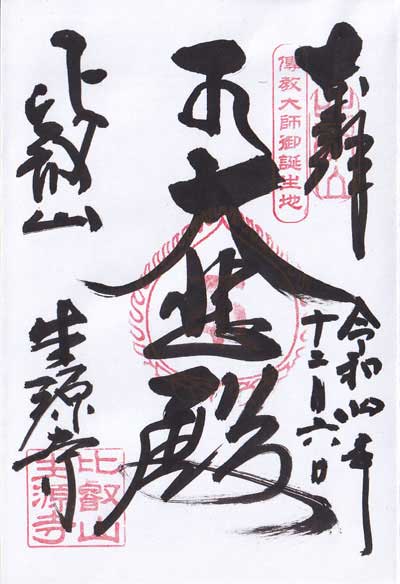 奉拝
傳教大師御誕生地
令和四年
十二月六日
大悲殿
比叡山
生源寺
比叡山
生源寺